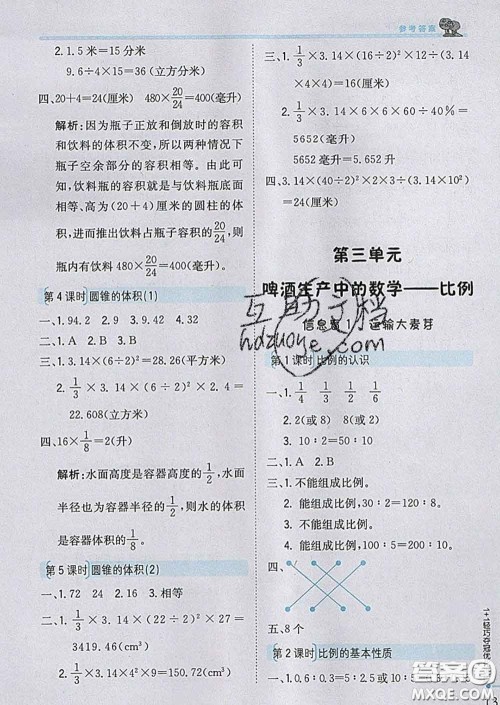 参考答案
2. 1.5米=15分米
9.6÷4×15=36(立方分米)
四、20+4=24(厘米) 480×20/24=400(毫升)
解析:因为瓶子正放和倒放时的容积
和饮料的体积不变,所以两种情况下
瓶子空余部分的容积相等。由此可
知,饮料瓶的容积就是与饮料瓶底面
相等、高为(20+4)厘米的圆柱的体
积,进而推出饮料占瓶子容积的20/24。
第4课时 圆锥的体积(1)
一、1. 94.2 2. 9 3. 9.42 4. 32
二、1. A 2. B
三、1. 3.14×(6÷2)²=28.26(平方米)
2. 1/3×3.14×(6÷2)²×2.4=
22.608(立方米)
四、16×1/8=2(升)
解析:水面高度是容器高度的1/2,水面
半径是容器半径的1/2,所以水的体积
是容器体积的1/8。
第5课时 圆锥的体积(2)
一、1. 72 24 2. 16 3. 相等
二、1. 1/3×3.14×(22÷2)²×27=
3419.46(cm³)
2. 1/3×3.14×4²×9=150.72(cm³)
三、1. 1/3×3.14×(16÷2)²×6÷(3.14
×4×4)=8(厘米)
2. 1/3×3.14×3×3×6×60÷60%=
5652(毫升)
5652毫升=5.652升
四、3.14×(40÷2)²×2×3÷(3.14×10²)
=24(厘米)
第三单元
啤酒生产中的数学——比例
信息窗1 运输大麦芽
第1课时 比例的认识
一、1. 1/4 1/4 1/6 1/6
2. 2(或8) 8(或2)
3. 10∶2=50∶10
二、1. A 2. B
三、1. 不能组成比例。
2. 能组成比例,30∶2=120∶8。
3. 不能组成比例。
4. 能组成比例,16∶8=200∶100。
四、
五、8个
第2课时 比例的基本性质
一、1. 0.6∶0.3=5∶2.5 0.6 2.5
1+1轻巧夺冠优
13
互助文档
hdzuoye.com
答案圈
MXQE.COM